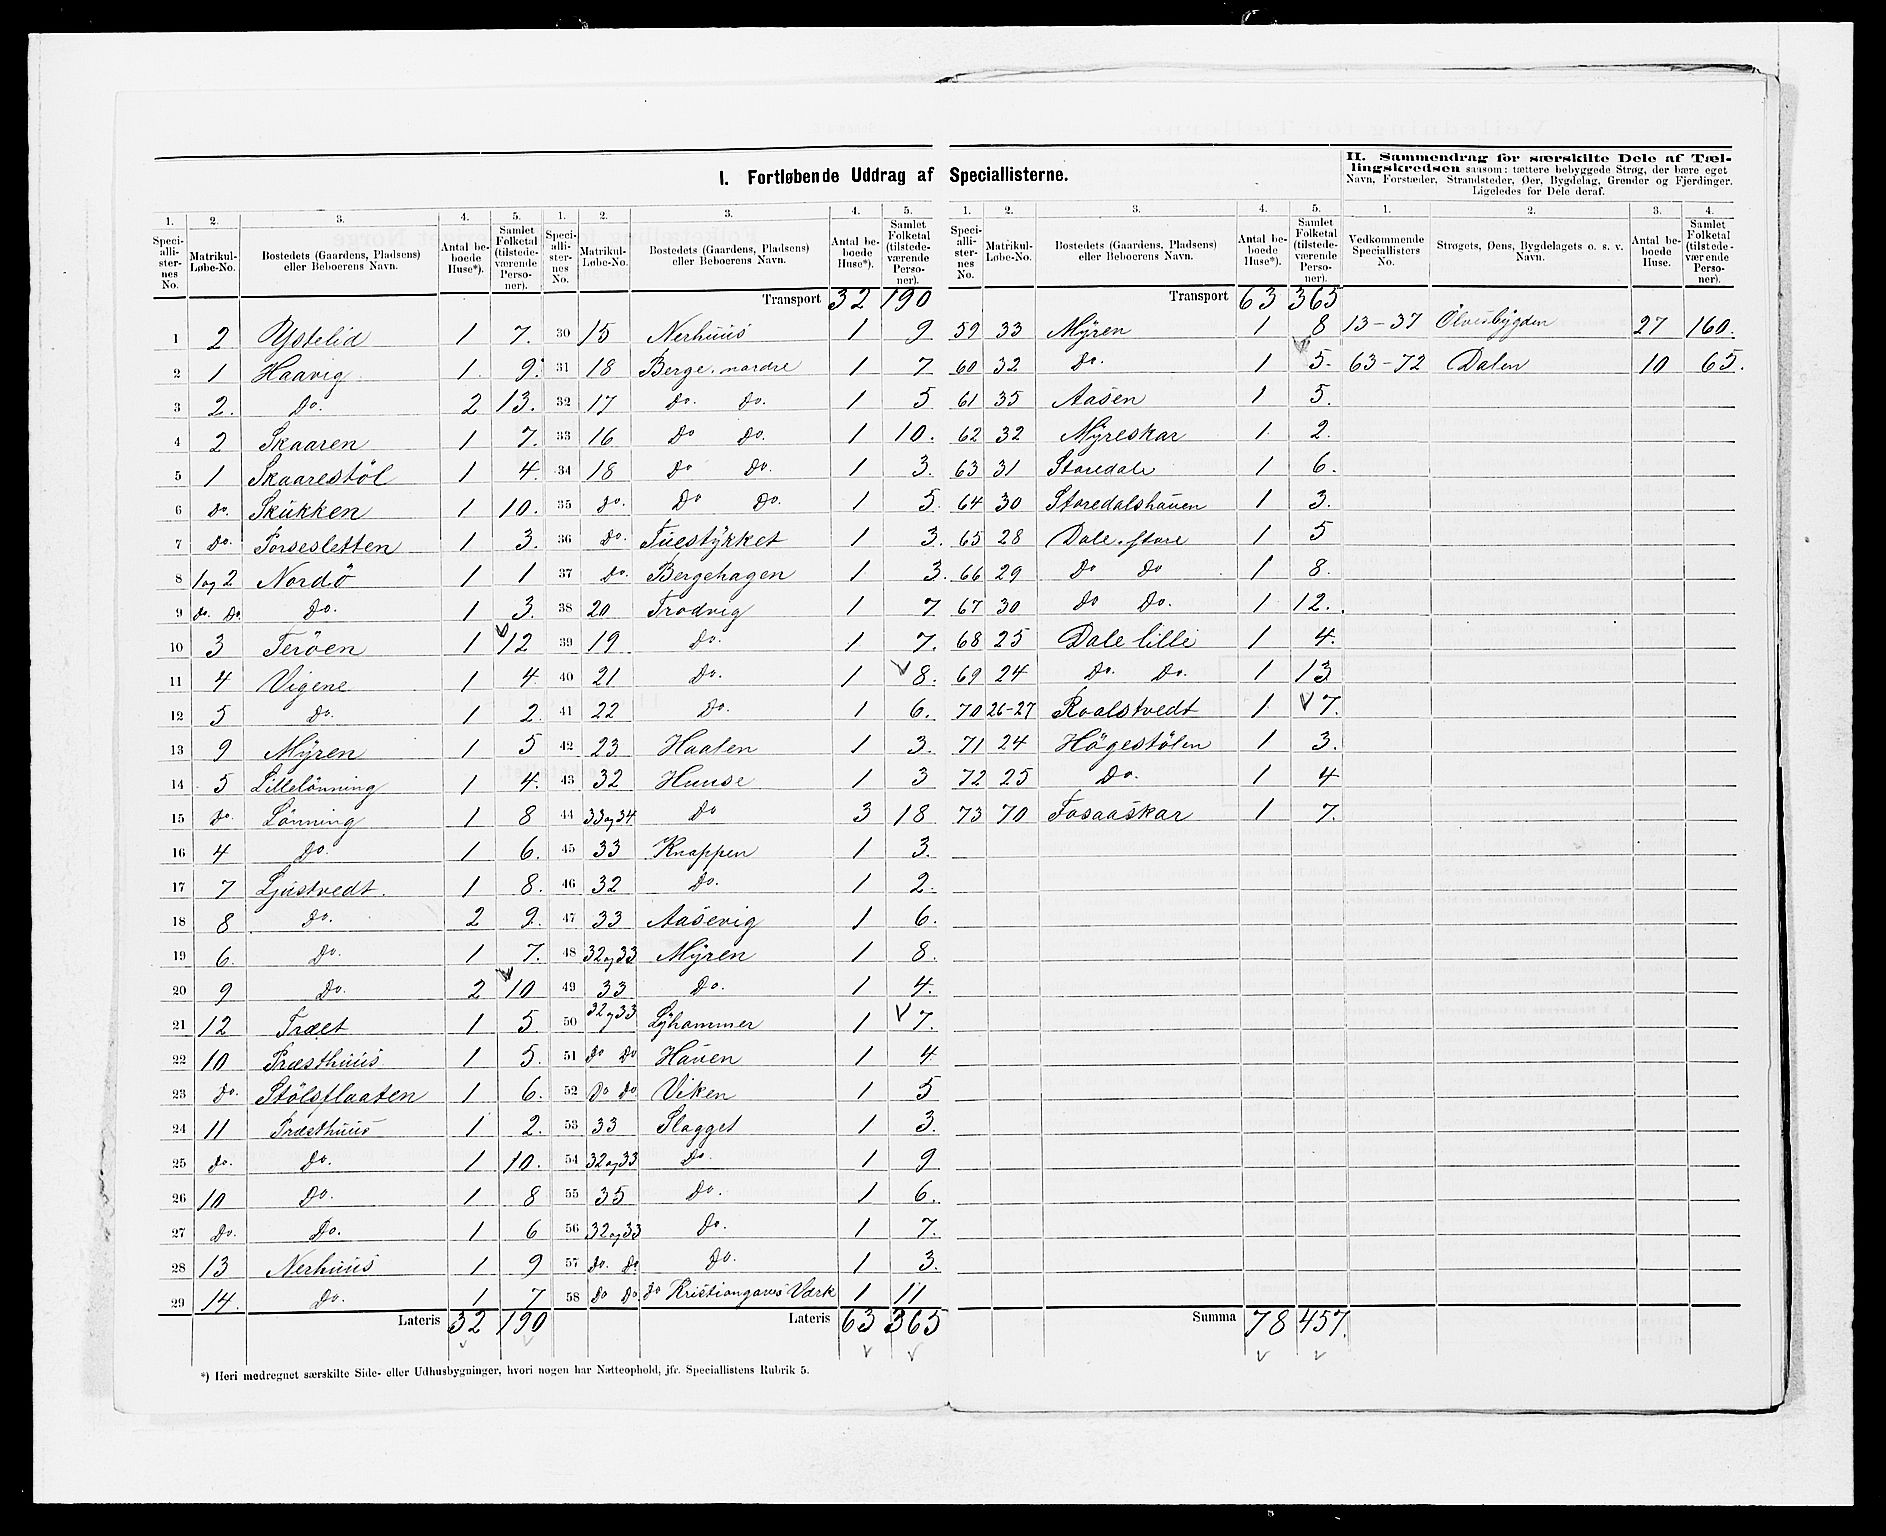 I. Fortløbende Uddrag af Speciallisterne.
II. Sammendrag for særskilte Dele af Tællingskredsen saasom: tættere bebyggede Strøg, der bære eget Navn, Forstæder, Strandsteder, Øer, Bygdelag, Grender og Fjerdinger. Ligeledes for Dele deraf.
1. 2. 3. 4. 5. 1. 2. 3. 4. 5. 1. 2. 3. 4. 5. 1. 2. 3. 4.
Speciallisternes No. Matrikul-Løbe-No. Bostedets (Gaardens, Pladsens) eller Beboerens Navn. Antal beboede Huse*). Samlet Folketal (tilstedeværende Personer).
Speciallisternes No. Matrikul-Løbe-No. Bostedets (Gaardens, Pladsens) eller Beboerens Navn. Antal beboede Huse*). Samlet Folketal (tilstedeværende Personer).
Speciallisternes No. Matrikul-Løbe-No. Bostedets (Gaardens, Pladsens) eller Beboerens Navn. Antal beboede Huse*). Samlet Folketal (tilstedeværende Personer).
Vedkommende Speciallisters No. Strøgets, Øens, Bygdelagets o. s. v. Navn. Antal beboede Huse. Samlet Folketal (tilstedeværende Personer).
1 2 Ystelid 1 7.
2 1 Haavig 1. 9.
3 2. Do. 2 13.
4 2 Skaaren 1 7.
5 1 Skaarestöl 1 4.
6 Do. Skukken 1 10.
7 Do. Porsesletten 1 3.
8 1 og 2 Nordö 1 1
9 Do. Do. Do. 1 3.
10 3 Teröen 1 12
11 4 Vigene 1 4.
12 5 Do. 1 2.
13 9 Myren 1 5
14 5 Lillelönning 1 4.
15 Do. Lönning 1 8
16 4 Do. 1 6.
17 7 Ljustvedt. 1 8.
18 8 Do. 2 9.
19 6. Do. 1 7.
20 9 Do. 2 10
21 12 Træet 1 5
22 10 Præsthuus 1 5.
23 Do. Stölsflaaten 1 6.
24 11 Præsthuus 1 2.
25 Do. Do. 1 10.
26 10 Do. 1 8
27 Do. Do. 1 6
28 13 Nerhuus 1 9
29 14. Do. 1 7
Lateris 32 190
Transport 32 190
30 15 Nerhuus 1 9
31 18 Berge, nordre 1 7
32 17 Do. Do. 1 5
33 16 Do Do. 1 10.
34 18 Do Do. 1 3.
35 Do. Do Do. 1 5.
36 Do. Tuestykket 1 3.
37 Do. Bergehagen 1 3.
38 20 Trodvig 1 7
39 19 Do. 1 7.
40 21 Do. 1 8.
41 22 Do. 1 6.
42 23 Haalen 1 3.
43 32 Huuse 1 3
44 33 og 34 Do 3 18
45 33 Knappen 1 3.
46 32 Do. 1 2.
47 33 Aasevig 1 6.
48 32 og 33 Myren 1 8.
49 33 Do. 1 4.
50 32 og 33 Lyhammer 1 7.
51 Do Do Hauen 1 4
52 Do Do Viken 1 5
53 33 Slagget 1 3.
54 32 og 33 Do. 1 9
55 35 Do. 1 6.
56 32 og 33 Do. 1 7.
57 Do. Do. Do. 1 3.
58 Do Do. Do Kristiangaves Værk 1 11
Lateris 63 365
Transport 63 365
59 33 Myren 1 8
60 32 Do. 1 5.
61 35 Aasen 1 5.
62 32 Myreskar 1 2.
63 31 Storedale 1 6.
64 30 Storedalshauen 1 3.
65 28 Dale, store 1 5
66 29 Do Do 1 8.
67 30 Do Do. 1 12.
68 25 Dale lille 1 4.
69 24 Do. Do. 1 13
70 26-27 Roalstvedt 1 7.
71 24 Högestölen 1 3.
72 25 Do. 1 4
73 70 Fosaaskar 1 7.
Summa 78 457.
13-37 Ölvesbygden 27 160.
63-72 Dalen 10 65.
*) Heri medregnet særskilte Side- eller Udhusbygninger, hvori nogen har Natteophold, jfr. Speciallistens Rubrik 5.